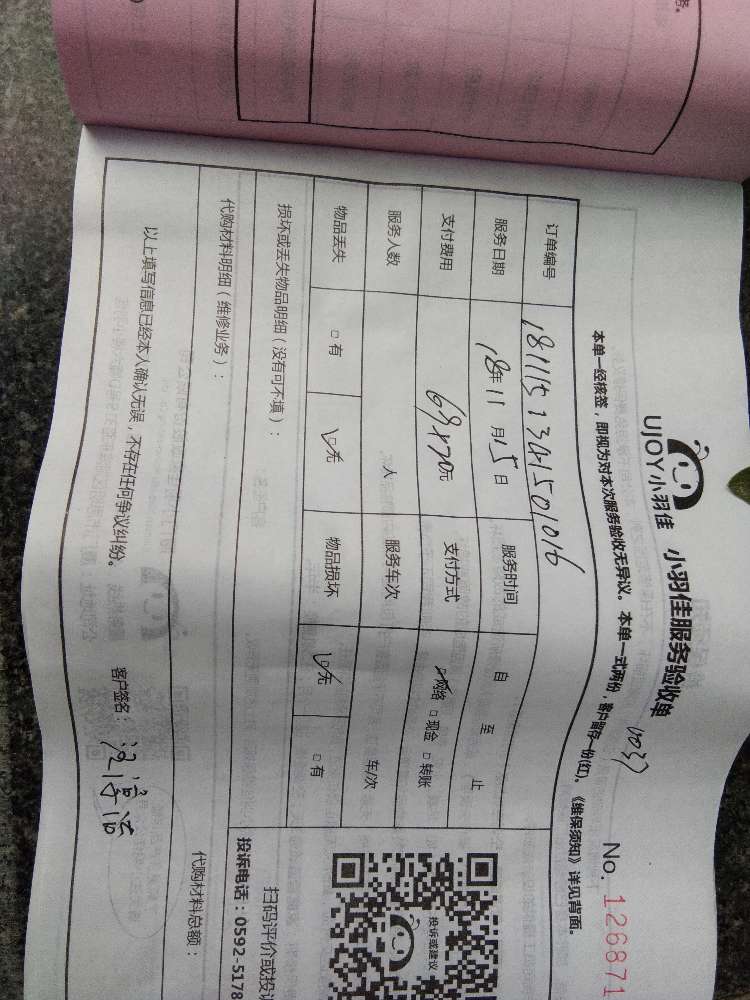 UJOY小羽佳 小羽佳服务验收单 No. 126871
本单一经核签，即视为对本次服务验收无异议。本单一式两份，客户留存一份(红)。《维保须知》详见背面。
订单编号 1811151341501016
服务日期 18年11月15日 服务时间 自 至 止
支付费用 69+70元 支付方式 网络 □现金 □转账
服务人数 人 服务车次 车/次
物品丢失 □有 □无 物品损坏 □无 □有
损坏或丢失物品明细（没有可不填）：
投诉或建议
扫码评价或投
投诉电话：0592-5178
代购材料明细（维修业务）：
代购材料总额：
以上填写信息已经本人确认无误，不存在任何争议纠纷。 客户签名：